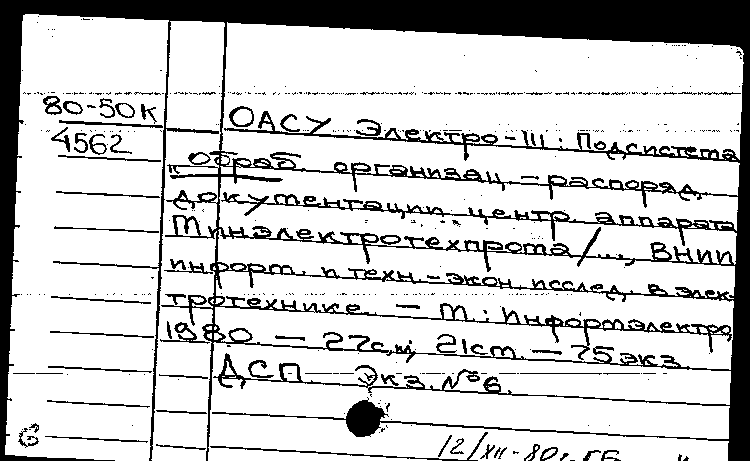 80-50К
4562
ОАСУ Электро-III: Подсистема
„Обраб. организац.-распоряд.
документации центр. аппарата
Минэлектротехпрома/..., ВНИИ
информ. и техн.-экон. исслед. в элек-
тротехнике. — М.: Информэлектро,
1980 — 27с., 21см. — 75экз.
ДСП. Экз. №6.
6
12/XII-80г.